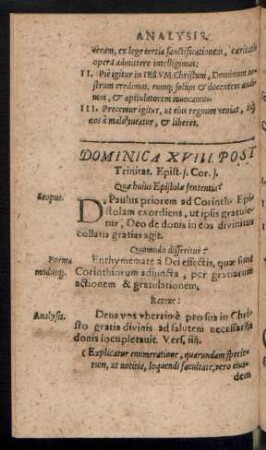 ANALYSIS.
veram, ex lege tertia sanctificationem, caritatis
opera admittere intelligimus:
II. Pie igitur in IESVM Christum, Dominum no-
strum credimus, eumq; solùm & docentem audia-
mus, & opitulatorem invocamus.
III. Precemur igitur, ut eius regnum veniat,
nos à malo tueatur, & liberet.
DOMINICA XVIII. POST
Trinitat. Epist. 1. Cor. 1.
Quæ huius Epistolæ sententia?
Scopus.
D. Paulus priorem ad Corinth. Epi-
stolam exordiens, ut ipsis gratule-
tur, Deo de donis in eos divinitus
collatis gratias agit.
Quomodo disseritur?
Forma
modusq;
Enthymemate à Dei effectis, quæ sunt
Corinthiorum adjuncta, per gratiarum
actionem & gratulationem,
Retexe:
Analysis.
Deus vos uberrimè pro sua in Chri-
sto gratia divinis ad salutem necessariis
donis locupletavit. Vers. iiij.
(Explicatur enumeratione, quarundam specie-
rum, ut notitia, loquendi facultate, vero eius-
dem